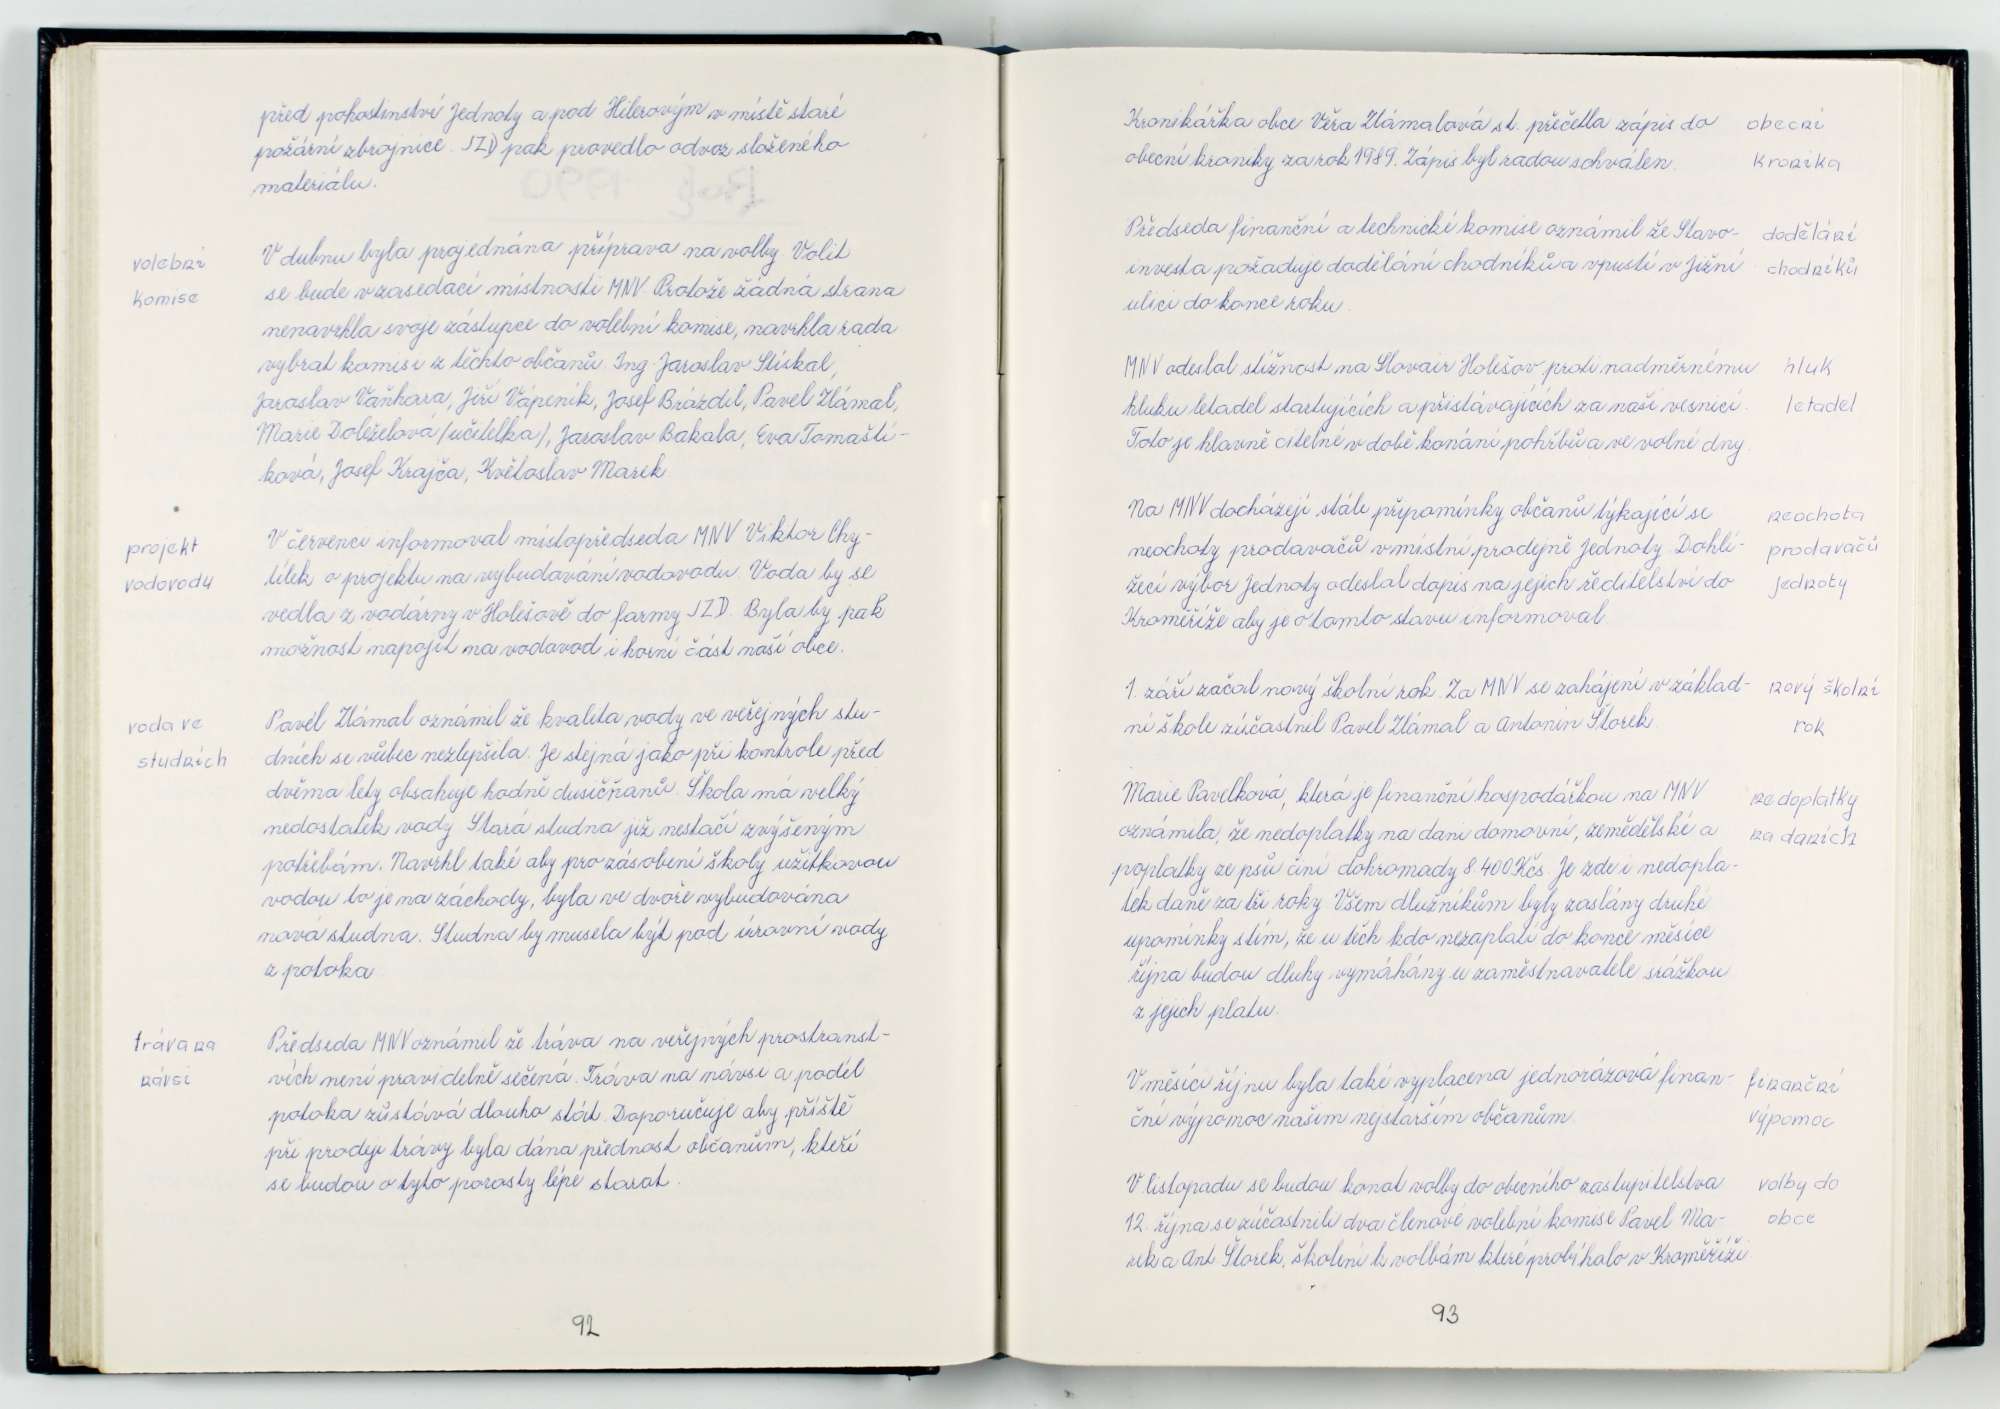 před pohostinství Jednoty a pod Hilerovým v místě staré
požární zbrojnice. JZD pak provedlo odvoz složeného
materiálu.
volební
komise
V dubnu byla projednána příprava na volby Volit
se bude v zasedací místnosti MNV. Protože žádná strana
nenavrhla svoje zástupce do volební komise, navrhla rada
vybrat komisi z těchto občanů. Ing. Jaroslav Stískal,
Jaroslav Vaňhara, Jiří Vápeník, Josef Brázdil, Pavel Zlámal,
Marie Doleželová /učitelka/, Jaroslav Bakala, Eva Tomaští-
ková, Josef Krajča, Květoslav Marek
projekt
vodovodu
V červenci informoval místopředseda MNV Viktor Chy-
tílek o projektu na vybudování vodovodu. Voda by se
vedla z vodárny v Holešově do farmy JZD. Byla by pak
možnost napojit na vodovod i horní část naší obce.
voda ve
studních
Pavel Zlámal oznámil že kvalita vody ve veřejných stu-
dních se vůbec nezlepšila. Je stejná jako při kontrole před
dvěma lety, obsahuje hodně dusičňanů. Škola má velký
nedostatek vody Stará studna již nestačí zvýšeným
potřebám. Navrhl také aby pro zásobení školy užitkovou
vodou to je na záchody, byla ve dvoře vybudována
nová studna. Studna by musela být pod úrovní vody
z potoka
tráva na
návsi
Předseda MNV oznámil že tráva na veřejných prostranst-
vích není pravidelně sečená. Tráva na návsi a podél
potoka zůstává dlouho stát. Doporučuje aby příště
při prodeji trávy byla dána přednost občanům, kteří
se budou o tyto porosty lépe starat.
92
Kronikářka obce Věra Zlámalová st. přečetla zápis do
obecní kroniky za rok 1989. Zápis byl radou schválen.
obecní
kronika
Předseda finanční a technické komise oznámil že Stavo-
investa požaduje dodělání chodníků a vpustí v Jižní
ulici do konce roku.
dodělání
chodníků
MNV odeslal stížnost na Slovair Holešov proti nadměrnému
hluku letadel startujících a přistávajících za naší vesnicí.
Toto je hlavně citelné v době konání pohřbů a ve volné dny.
hluk
letadel
Na MNV docházejí stále připomínky občanů týkající se
neochoty prodavačů v místní prodejně Jednoty. Dohlí-
žecí výbor Jednoty odeslal dopis na jejich ředitelství do
Kroměříže aby je o tomto stavu informoval
neochota
prodavačů
Jednoty
1. září začal nový školní rok. Za MNV se zahájení v základ-
ní škole zúčastnil Pavel Zlámal a Antonín Štorek.
nový školní
rok
Marie Pavelková, která je finanční hospodářkou na MNV
oznámila, že nedoplatky na dani domovní, zemědělské a
poplatky ze psů činí dohromady 8.400 Kčs. Je zde i nedopla-
tek daně za tři roky. Všem dlužníkům byly zaslány druhé
upomínky s tím, že u těch kdo nezaplatí do konce měsíce
října budou dluhy vymáhány u zaměstnavatele srážkou
z jejich platu.
nedoplatky
na daních
V měsíci říjnu byla také vyplacena jednorázová finan-
ční výpomoc našim nejstarším občanům.
finanční
výpomoc
V listopadu se budou konat volby do obecního zastupitelstva
12. října se zúčastnili dva členové volební komise Pavel Ma-
rek a Ant Štorek, školení k volbám které probíhalo v Kroměříži
volby do
obce
93